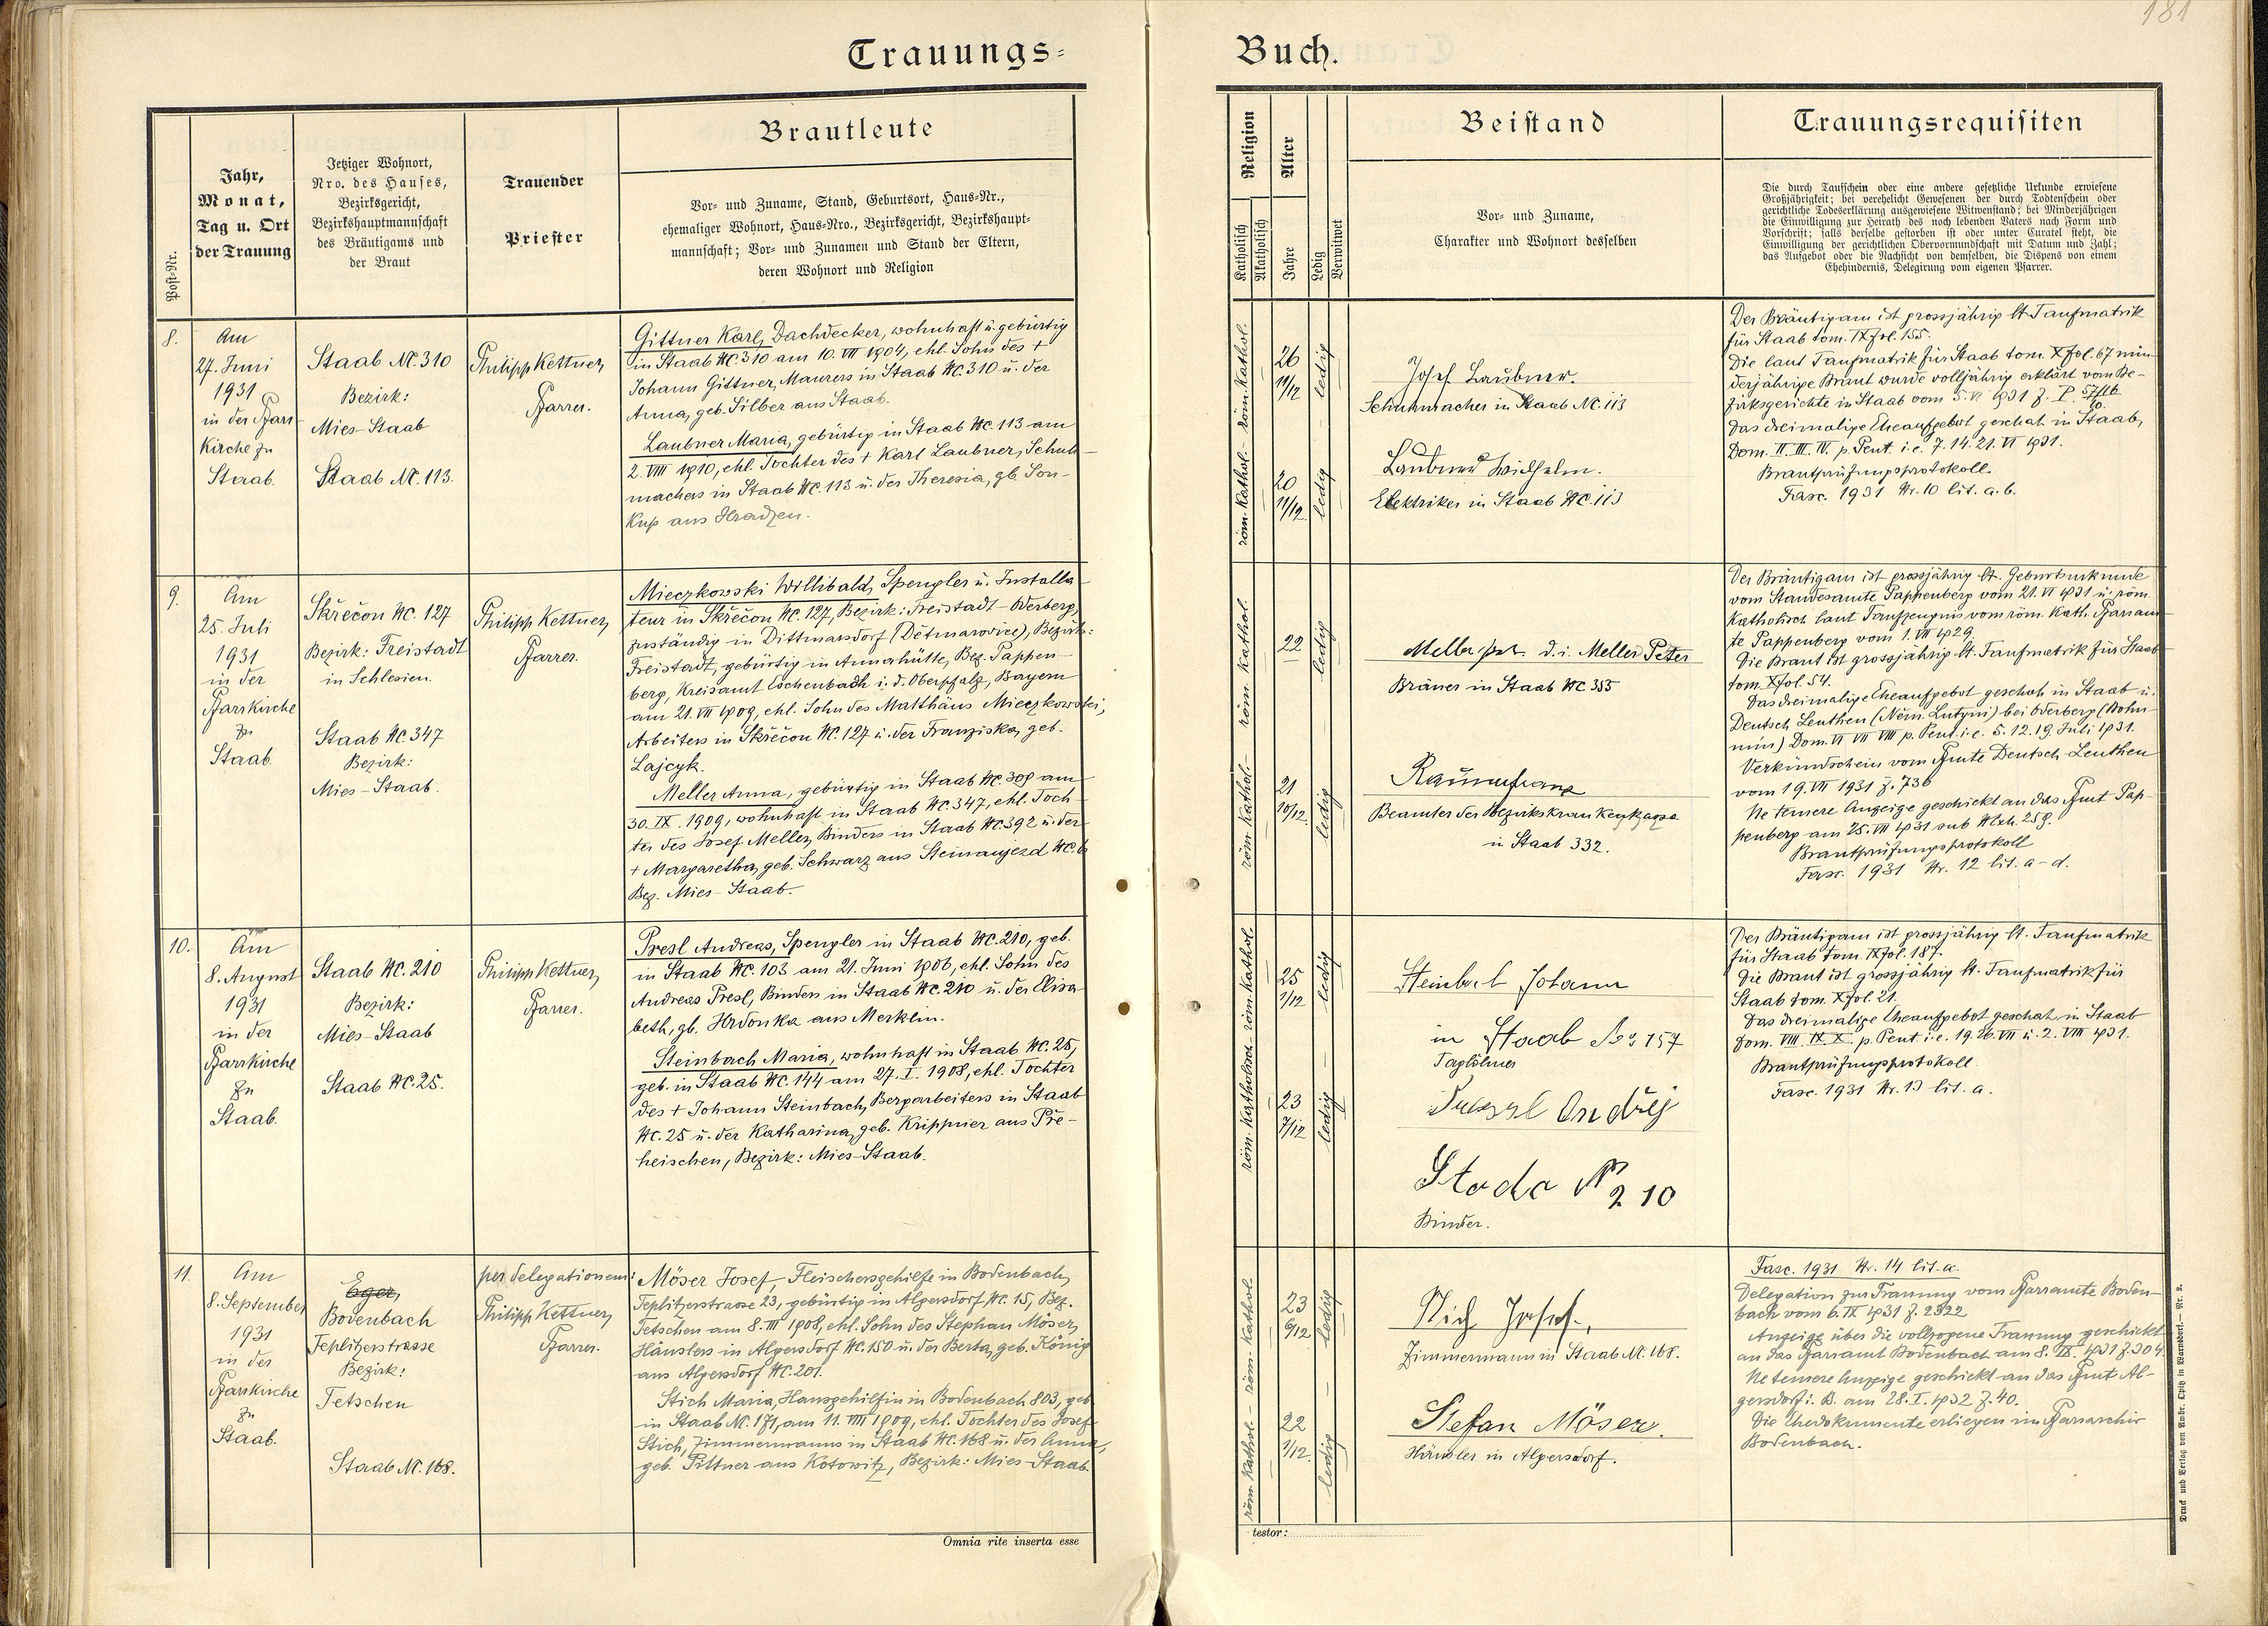 181
Trauungs-
Buch.
Post-Nr.
Jahr,
Monat,
Tag u. Ort
der Trauung
Jetziger Wohnort,
Nro. des Hauses,
Bezirksgericht,
Bezirkshauptmannschaft
des Bräutigams und
der Braut
Trauender
Priester
Brautleute
Vor- und Zuname, Stand, Geburtsort, Haus-Nr.,
ehemaliger Wohnort, Haus-Nro., Bezirksgericht, Bezirkshaupt-
mannschaft; Vor- und Zunamen und Stand der Eltern,
deren Wohnort und Religion
Religion
Katholisch
Akatholisch
Alter
Jahre
Ledig
Verwitwet
Beistand
Vor- und Zuname,
Charakter und Wohnort desselben
Trauungsrequisiten
Die durch Taufschein oder eine andere gesetzliche Urkunde erwiesene
Großjährigkeit; bei verehelicht Gewesenen der durch Todtenschein oder
gerichtliche Todeserklärung ausgewiesene Witwenstand; bei Minderjährigen
die Einwilligung zur Heirath des noch lebenden Vaters nach Form und
Vorschrift; falls derselbe gestorben ist oder unter Curatel steht, die
Einwilligung der gerichtlichen Obervormundschaft mit Datum und Zahl;
das Aufgebot oder die Nachsicht von demselben, die Dispens von einem
Ehehindernis, Delegirung vom eigenen Pfarrer.
8.
Am
27. Juni
1931
in der Pfarr-
Kirche zu
Staab.
Staab NC. 310
Bezirk:
Mies-Staab
Staab NC. 113.
Philipp Kettner,
Pfarrer.
Gittner Karl, Dachdecker, wohnhaft u. gebürtig
in Staab NC. 310 am 10. VII 1904, ehl. Sohn des +
Johann Gittner, Maurers in Staab NC. 310 u. der
Anna, geb. Silber aus Staab.
Laubner Maria, gebürtig in Staab NC. 113 am
2. VIII 1910, ehl. Tochter des + Karl Laubner, Schuh-
machers in Staab NC. 113 u. der Theresia, gb. Sou-
kup aus Hradzen.
röm. kathol. - röm. kathol.
26
11/12
ledig
20
11/12.
ledig
Josef Laubner.
Schuhmacher in Staab NC. 113
Laubner Wilhelm.
Elektriker in Staab NC. 113
Der Bräutigam ist grossjährig lt. Taufmatrik
für Staab tom. IX fol. 155.
Die laut Taufmatrik für Staab tom. X fol. 67 min-
derjährige Braut wurde volljährig erklärt vom Be-
zirksgerichte in Staab vom 5. VI 1931 Z. P. 57/16
Das dreimalige Eheaufgebot geschah in Staab,
Dom. II. III. IV. p. Pent. i. e. 7. 14. 21. VI 1931.
Brautprüfungsprotokoll.
Fasc. 1931 Nr. 10 lit. a. b.
9.
Am
25. Juli
1931
in der
Pfarrkirche
zu
Staab.
Skřečoň NC. 127
Bezirk: Freistadt
in Schlesien.
Staab NC. 347
Bezirk:
Mies-Staab.
Philipp Kettner,
Pfarrer.
Mieczkowski Willibald, Spengler u. Installa-
teur in Skřečoň NC. 127, Bezirk: Freistadt-Oderberg,
zuständig in Dittmarsdorf (Dětmarovice), Bezirk:
Freistadt, gebürtig in Annahütte, Bez. Pappen-
berg, Kreisamt Eschenbach i. d. Oberpfalz, Bayern
am 21. VII 1909, ehl. Sohn des Matthäus Mieczkowski,
Arbeiters in Skřečoň NC. 127 u. der Franziska, geb.
Lajczyk.
Meller Anna, gebürtig in Staab NC. 309 am
30. IX. 1909, wohnhaft in Staab NC. 347, ehl. Toch-
ter des Josef Meller, Binders in Staab NC. 392 u. der
+ Margaretha, geb. Schwarz aus Steinaujezd NC. 6
Bez. Mies-Staab.
röm. kathol. - röm. kathol.
22
ledig
21
10/12.
ledig
Meller Pet. d. i. Meller Peter
Bräuer in Staab NC 355
Beamter der Bezirkskrankenkassa
in Staab 332.
Der Bräutigam ist grossjährig lt. Geburtsurkunde
vom Standesamte Pappenberg vom 21. VI 1931 u. röm.
katholisch laut Taufzeugnis vom röm. kath. Pfarram-
te Pappenberg vom 1. VII 1929.
Die Braut ist grossjährig lt. Taufmatrik für Staab
tom. X fol. 54.
Das dreimalige Eheaufgebot geschah in Staab u.
Deutsch Leuthen (Něm. Lutyni) bei Oderberg (Bohu-
mín) Dom. VI VII VIII p. Pent. i. e. 5. 12. 19. Juli 1931.
Verkündschein vom Pfmte Deutsch Leuthen
vom 19. VII 1931 Z. 736
Ne temere Anzeige geschickt an das Pfmt Pap-
penberg am 25. VII 1931 sub N. Exh. 259.
Brautprüfungsprotokoll
Fasc. 1931 Nr. 12 lit. a-d.
10.
Am
8. August
1931
in der
Pfarrkirche
zu
Staab.
Staab NC. 210
Bezirk:
Mies-Staab
Staab NC. 25.
Philipp Kettner,
Pfarrer.
Presl Andreas, Spengler in Staab NC. 210, geb.
in Staab NC. 103 am 21. Juni 1906, ehl. Sohn des
Andreas Presl, Binders in Staab NC. 210 u. der Elisa-
beth, gb. Hrdonka aus Merklin.
Steinbach Maria, wohnhaft in Staab NC. 25,
geb. in Staab NC. 144 am 27. I. 1908, ehl. Tochter
des + Johann Steinbach, Bergarbeiters in Staab
NC. 25 u. der Katharina, geb. Krippner aus Pře-
heischen, Bezirk: Mies-Staab.
röm. katholisch - röm. kathol.
25
1/12
ledig
23
7/12
ledig
Steinbach Johann
in Staab No 157
Taglöhner
Andřej
Stoda N 210
Binder.
Der Bräutigam ist grossjährig lt. Taufmatrik
für Staab tom. IX fol. 187.
Die Braut ist grossjährig lt. Taufmatrik für
Staab tom. X fol. 21.
Das dreimalige Eheaufgebot geschah in Staab
Dom. VIII. IX X. p. Pent i. e. 19. 26. VII u. 2. VIII 1931.
Brautprüfungsprotokoll.
Fasc. 1931 Nr. 13 lit. a.
11.
Am
8. September
1931
in der
Pfarrkirche
zu
Staab.
Eger,
Bodenbach
Teplitzerstrasse
Bezirk:
Tetschen
Staab NC. 168.
per delegationem:
Philipp Kettner,
Pfarrer.
Möser Josef, Fleischersgehilfe in Bodenbach,
Teplitzerstrasse 23, gebürtig in Algersdorf NC. 15, Bez.
Tetschen am 8. III 1908, ehl. Sohn des Stephan Möser,
Häuslers in Algersdorf NC. 150 u. der Berta, geb. König
aus Algersdorf NC. 201.
Stich Maria, Hausgehilfin in Bodenbach 803, geb.
in Staab NC. 171, am 11. VIII 1909, ehl. Tochter des Josef
Stich, Zimmermanns in Staab NC. 168 u. der Anna,
geb. Pittner aus Kotowitz, Bezirk: Mies-Staab
röm. kathol. - röm. kathol.
23
6/12
ledig
22
1/12.
ledig
Stich Josef.,
Zimmermann in Staab NC. 168.
Stefan Möser.
Häusler in Algersdorf.
Fasc. 1931 Nr. 14 lit. a.
Delegation zur Trauung vom Pfarramte Boden-
bach vom 6. IX 1931 Z. 2322
Anzeige über die vollzogene Trauung geschickt
an das Pfarramt Bodenbach am 8. IX. 1931 Z. 304.
Ne temere Anzeige geschickt an das Pfmt Al-
gersdorf i. B. am 28. I. 1932 Z. 40.
Die Ehedokumente erliegen im Pfarrarchiv
Bodenbach.
Omnia rite inserta esse
testor:
Druck und Verlag von Ambr. Opitz in Warnsdorf. — Nr. 2.